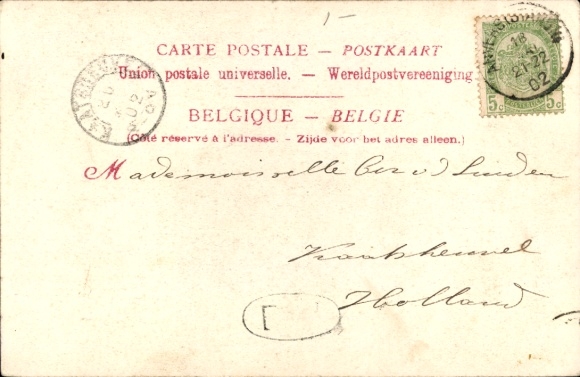 1-
CARTE POSTALE — POSTKAART
Union postale universelle. — Wereldpostvereeniging
BELGIQUE — BELGIE
(Côté réservé à l'adresse. - Zijde voor het adres alleen.)
21-22
02
5c 5c
Mademoiselle v d Linden
Kaatsheuvel
Holland